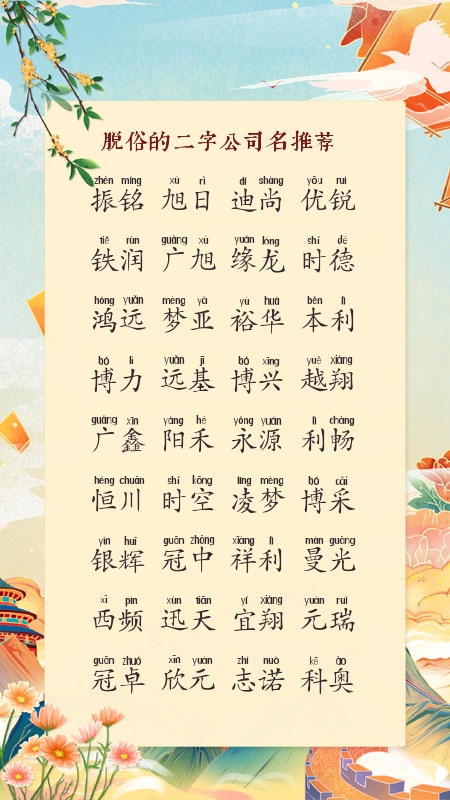 脱俗的二字公司名推荐
zhèn míng xù rì dí shàng yōu ruì
振铭 旭日 迪尚 优锐
tiě rùn guǎng xù yuán lóng shí dé
铁润 广旭 缘龙 时德
hóng yuǎn mèng yà yù huá běn lì
鸿远 梦亚 裕华 本利
bó lì yuǎn jī bó xīng yuè xiáng
博力 远基 博兴 越翔
guǎng xīn yáng hé yǒng yuán lì chàng
广鑫 阳禾 永源 利畅
héng chuān shí kōng líng mèng bó cǎi
恒川 时空 凌梦 博采
yín huī guān zhōng xiáng lì màn guāng
银辉 冠中 祥利 曼光
xī pín xùn tiān yí xiáng yuán ruì
西频 迅天 宜翔 元瑞
guān zhuó xīn yuán zhì nuò kē ào
冠卓 欣元 志诺 科奥